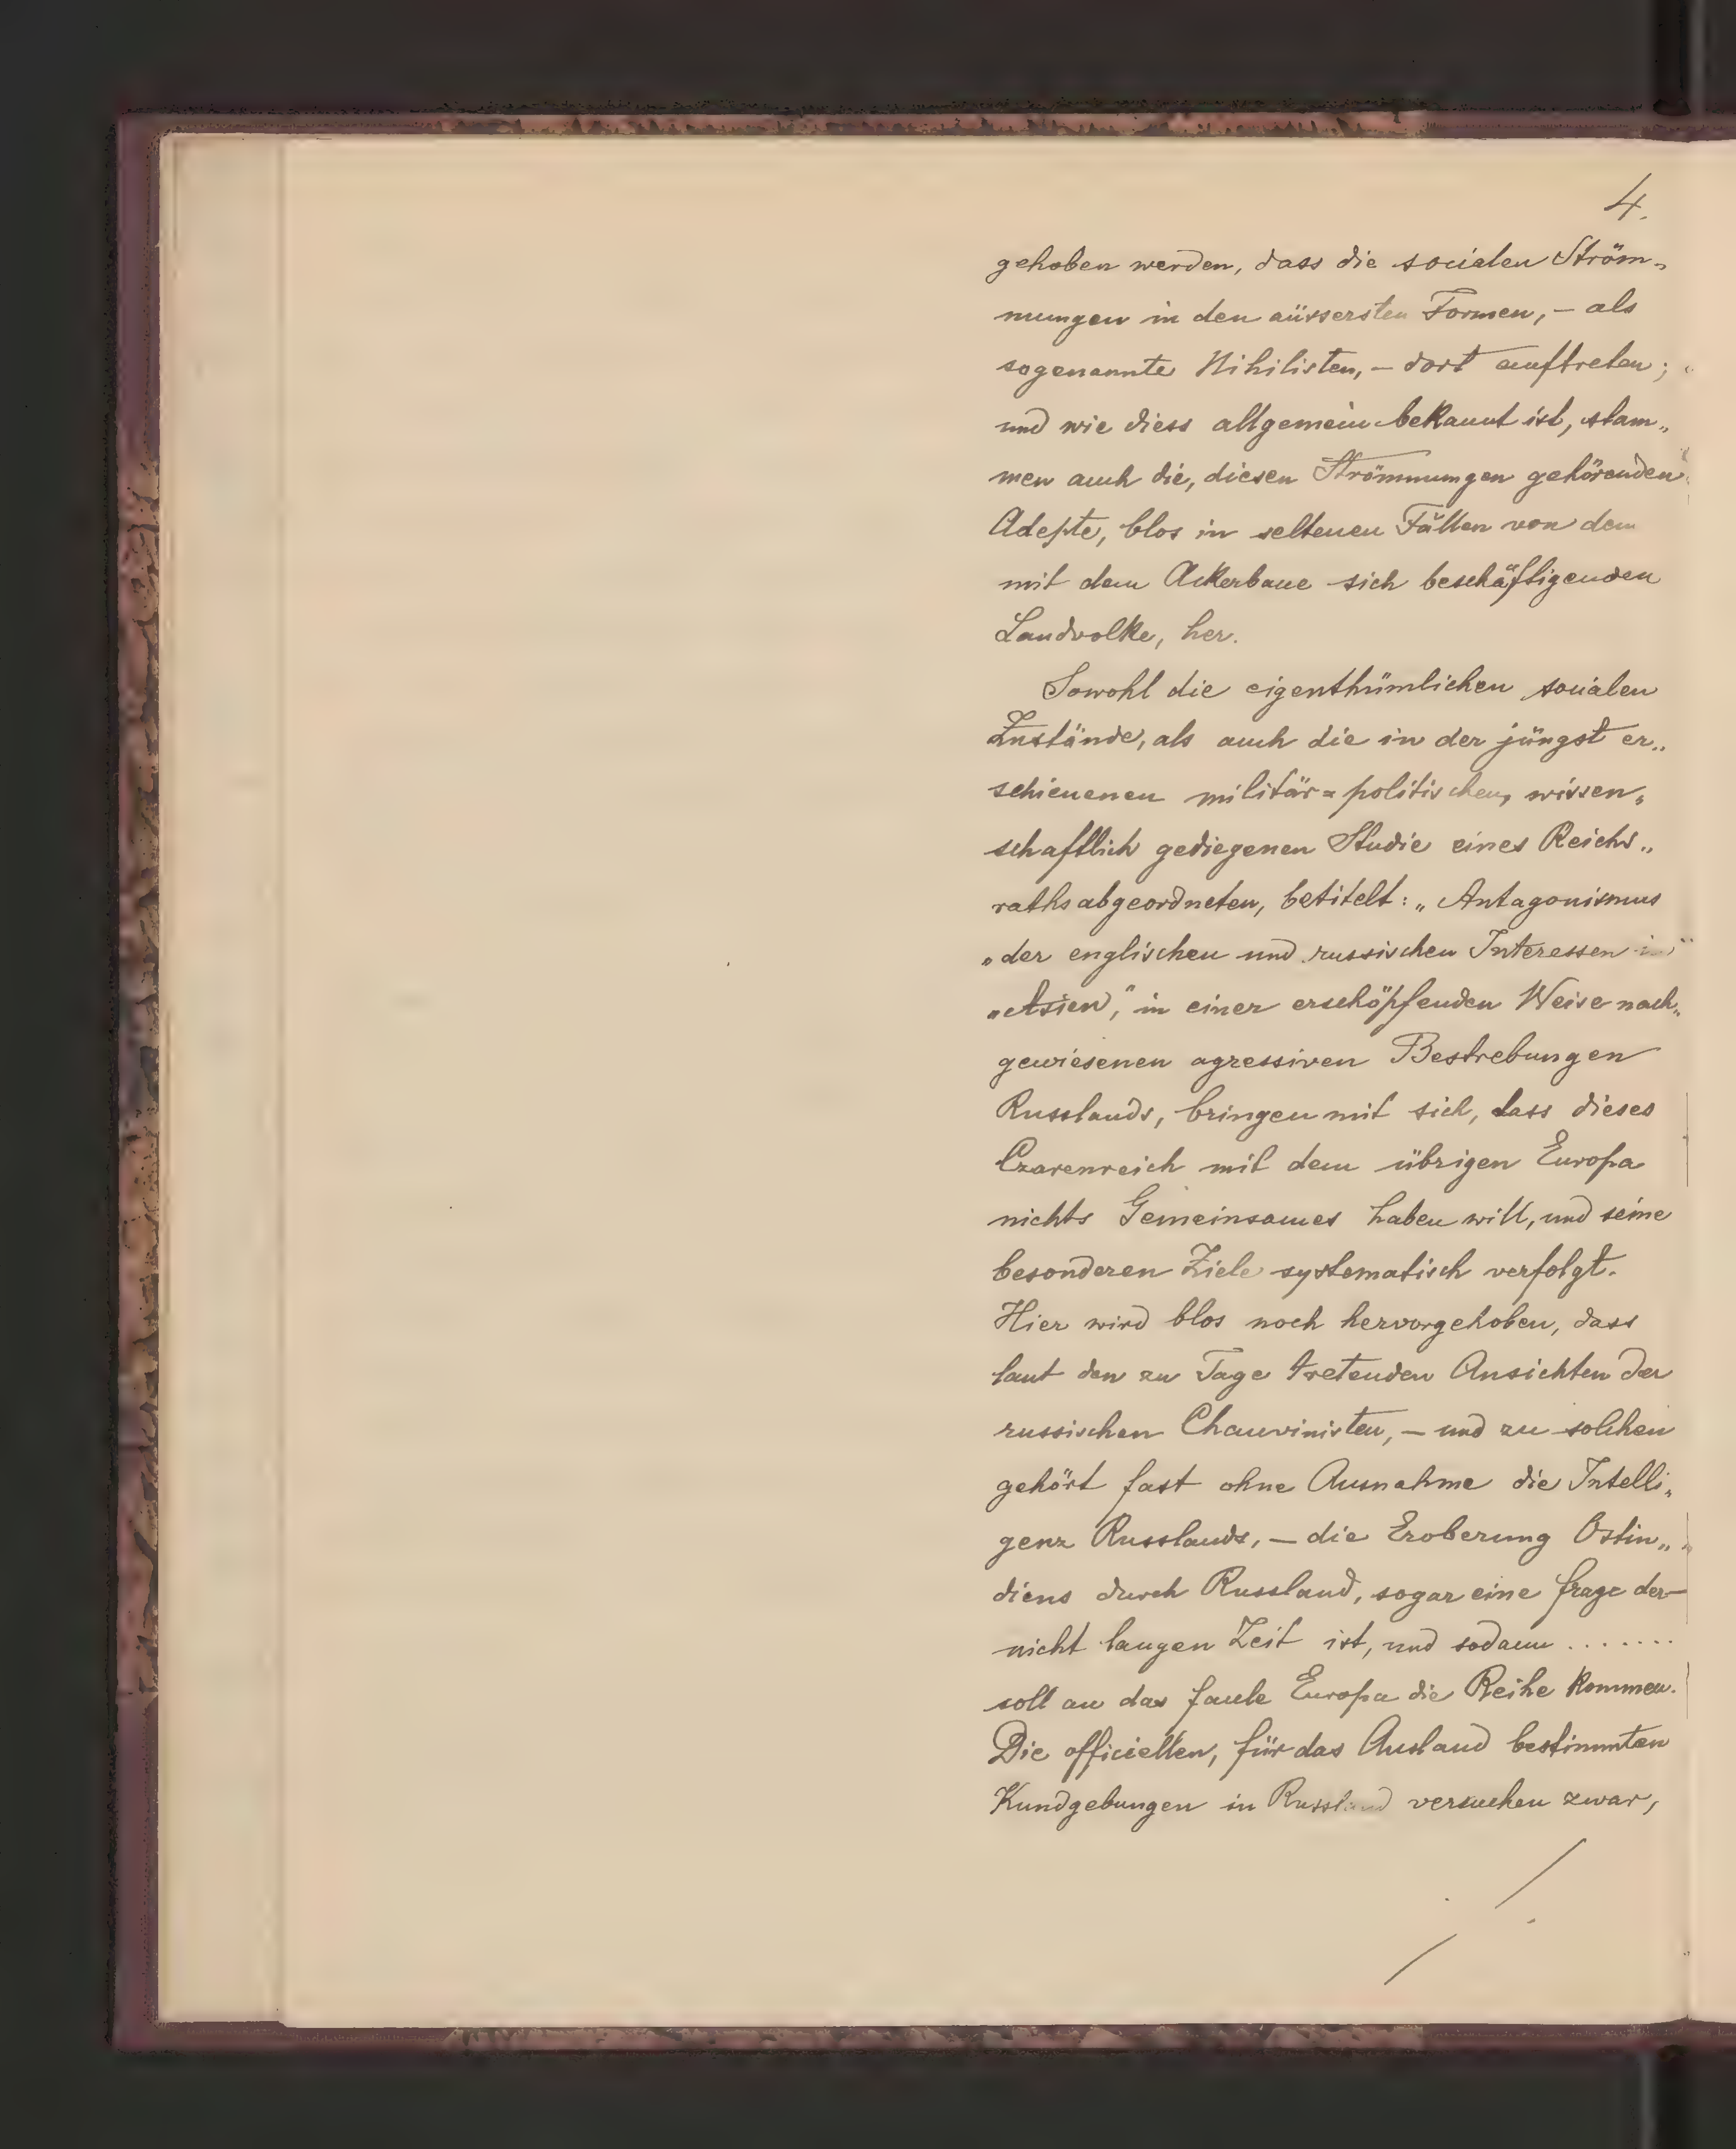 4.
gehoben werden, dass die socialen Ström„
mungen in den aüssersten Formen, – als
sogenannte Nihilisten, – dort auftreten;
und wie diess allgemein bekannt ist, stam„
men auch die, diesen Strömmungen gehörenden
Adepte, blos in seltenen Fällen von dem
mit dem Ackerbaue sich beschäftigenden
Landvolke, her.
Sowohl die eigenthümlichen socialen
Zustände, als auch die in der jüngst er„
schienenen militär=politischen, wissen„
schaftlich gediegenen Studie eines Reichs„
rathsabgeordneten, betitelt: „Antagonismus
„der englischen und russischen Interessen in"
„Asien," in einer erschöpfenden Weise nach„
gewiesenen agressiven Bestrebungen
Russlands, bringen mit sich, dass dieses
Czarenreich mit dem übrigen Europa
nichts Gemeinsames haben will, und seine
besonderen Ziele systematisch verfolgt.
Hier wird blos noch hervorgehoben, dass
laut den zu Tage tretenden Ansichten der
russischen Chauvinisten, – und zu solchen
gehört fast ohne Ausnahme die Intelli„
genz Russlands, – die Eroberung Ostin„
diens durch Russland, sogar eine frage der
nicht langen Zeit ist, und sodann .......
soll an das faule Europa die Reihe kommen.
Die officiellen, für das Ausland bestimmten
Kundgebungen in Russland versuchen zwar,